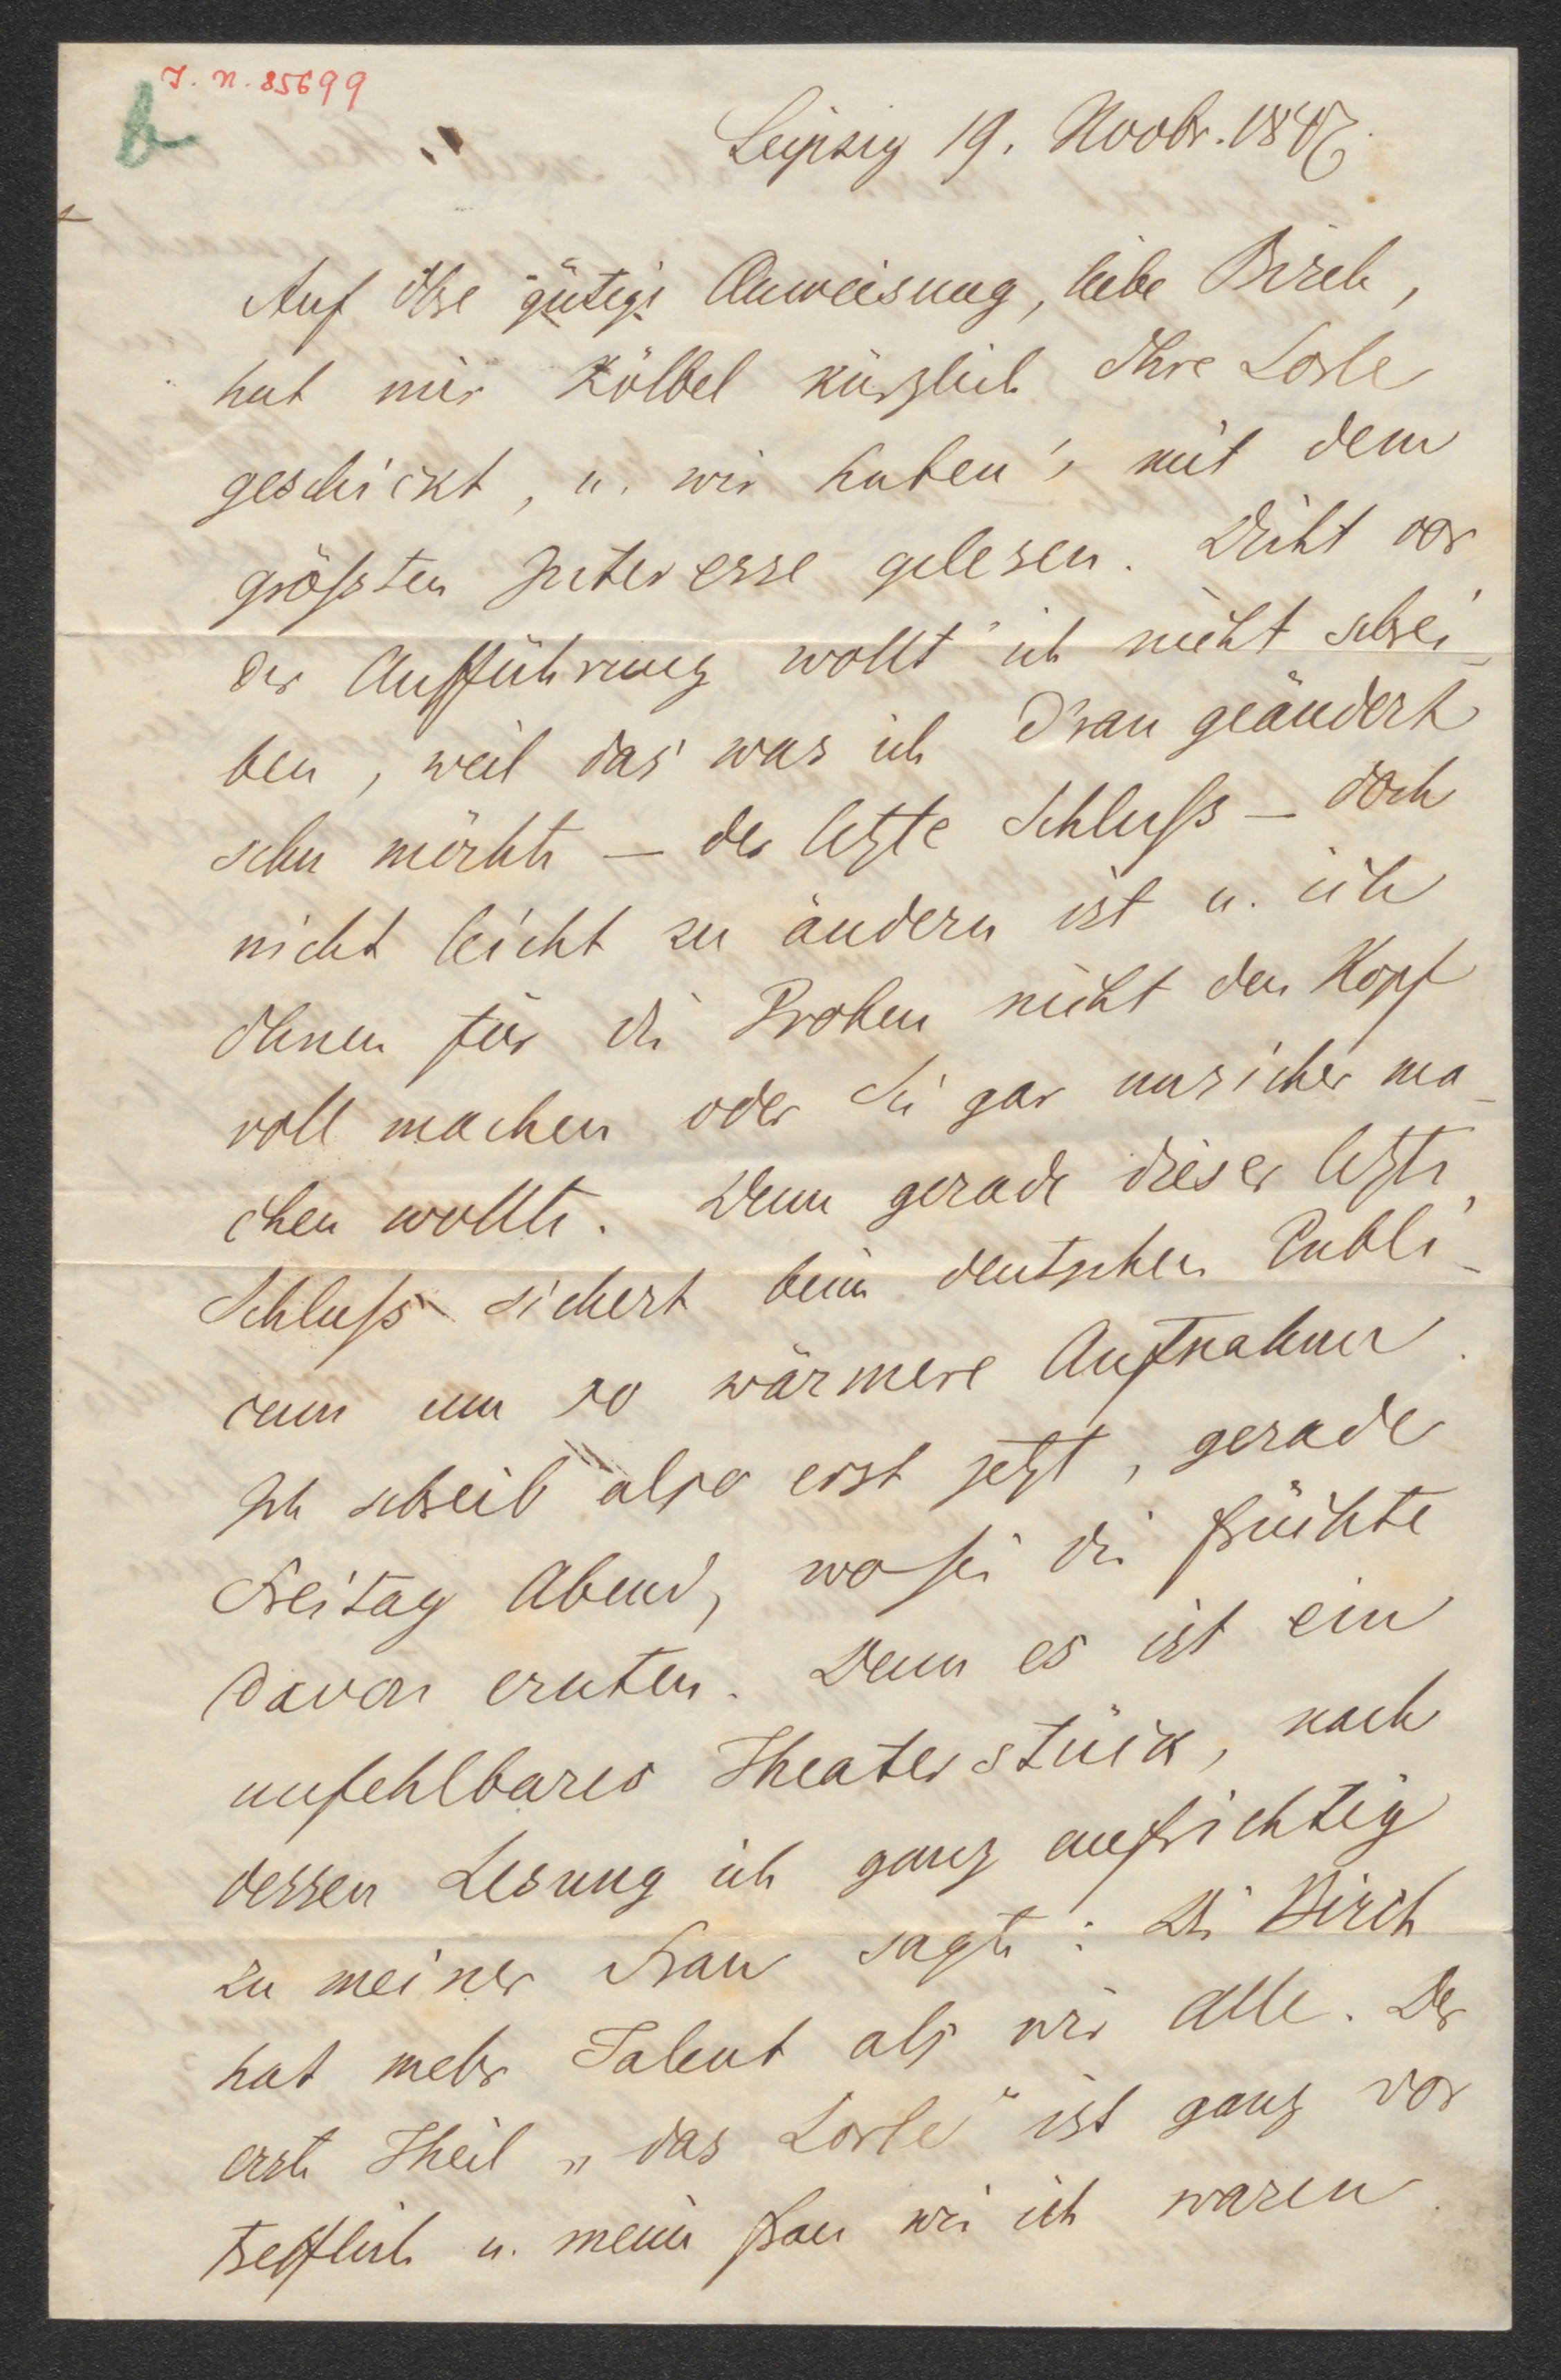 J. N. 85699
b
Leipzig 19. Novbr. 1847.
Auf Ihre gütige Anweisung, liebe Birch,
hat mir Kölbel kürzlich Ihre Lorle
geschickt, u. wir haben's mit dem
größten Interesse gelesen. Dicht vor
der Aufführung wollt' ich nicht schrei-
ben, weil das was ich d'ran geändert
sehn möchte – der letzte Schluß – doch
nicht leicht zu ändern ist u. ich
Ihnen für die Proben nicht den Kopf
voll machen oder Sie gar unsicher ma-
chen wollte. Denn gerade dieser letzte
Schluß sichert beim deutschen Publi-
cum um so wärmere Aufnahme.
Ich schreib' also erst jetzt, gerade
Freitag Abend, wo sie die Früchte
davon ernten. Denn es ist ein
unfehlbares Theaterstück, nach
dessen Lesung ich ganz aufrichtig
zu meiner Frau sagte: Die Birch
hat mehr Talent als wir alle. Der
erste Theil „das Lorle" ist ganz vor
trefflich u. meine Frau wie ich waren